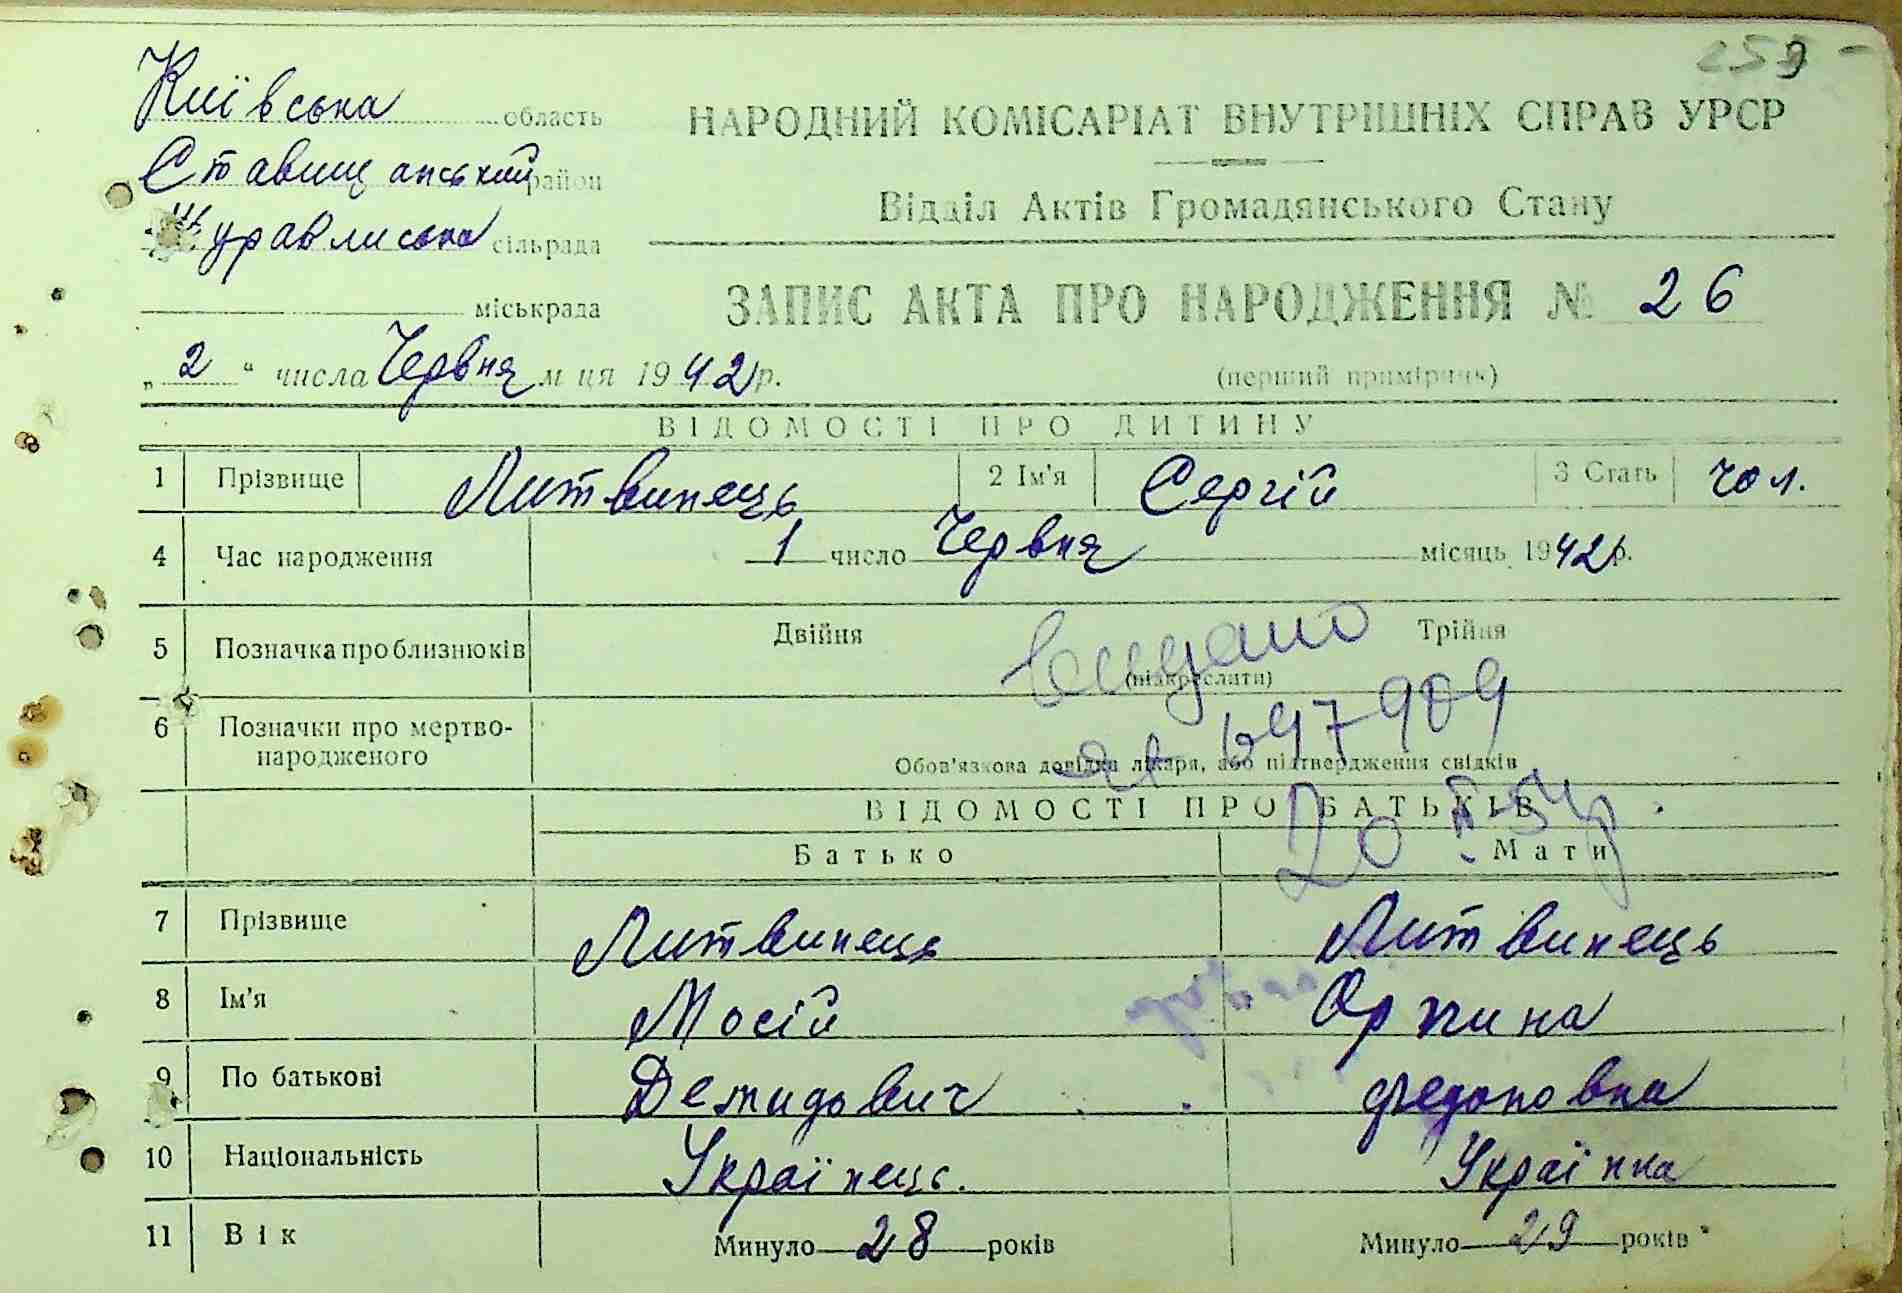 259
Київська область
Ставищанський район
Журавлиська сільрада
міськрада
НАРОДНИЙ КОМІСАРІАТ ВНУТРІШНІХ СПРАВ УРСР
Відділ Актів Громадянського Стану
ЗАПИС АКТА ПРО НАРОДЖЕННЯ № 26
„ 2 “ числа Червня м ця 1942 р.
(перший примірник)
ВІДОМОСТІ ПРО ДИТИНУ
1 Прізвище Литвинець 2 Ім'я Сергій 3 Стать чол.
4 Час народження 1 число Червня місяць 1942 р.
5 Позначка про близнюків Двійня Трійня
(підкреслити)
видано
6 Позначки про мертво-
народженого
697909
Обов'язкова довідка лікаря, або підтвердження свідків
ВІДОМОСТІ ПРО БАТЬКІВ
Батько Мати
7 Прізвище Литвинець Литвинець
8 Ім'я Мосій Оржина
9 По батькові Демидович Федоровна
10 Національність Українець. Українка
11 Вік Минуло 28 років Минуло 29 років